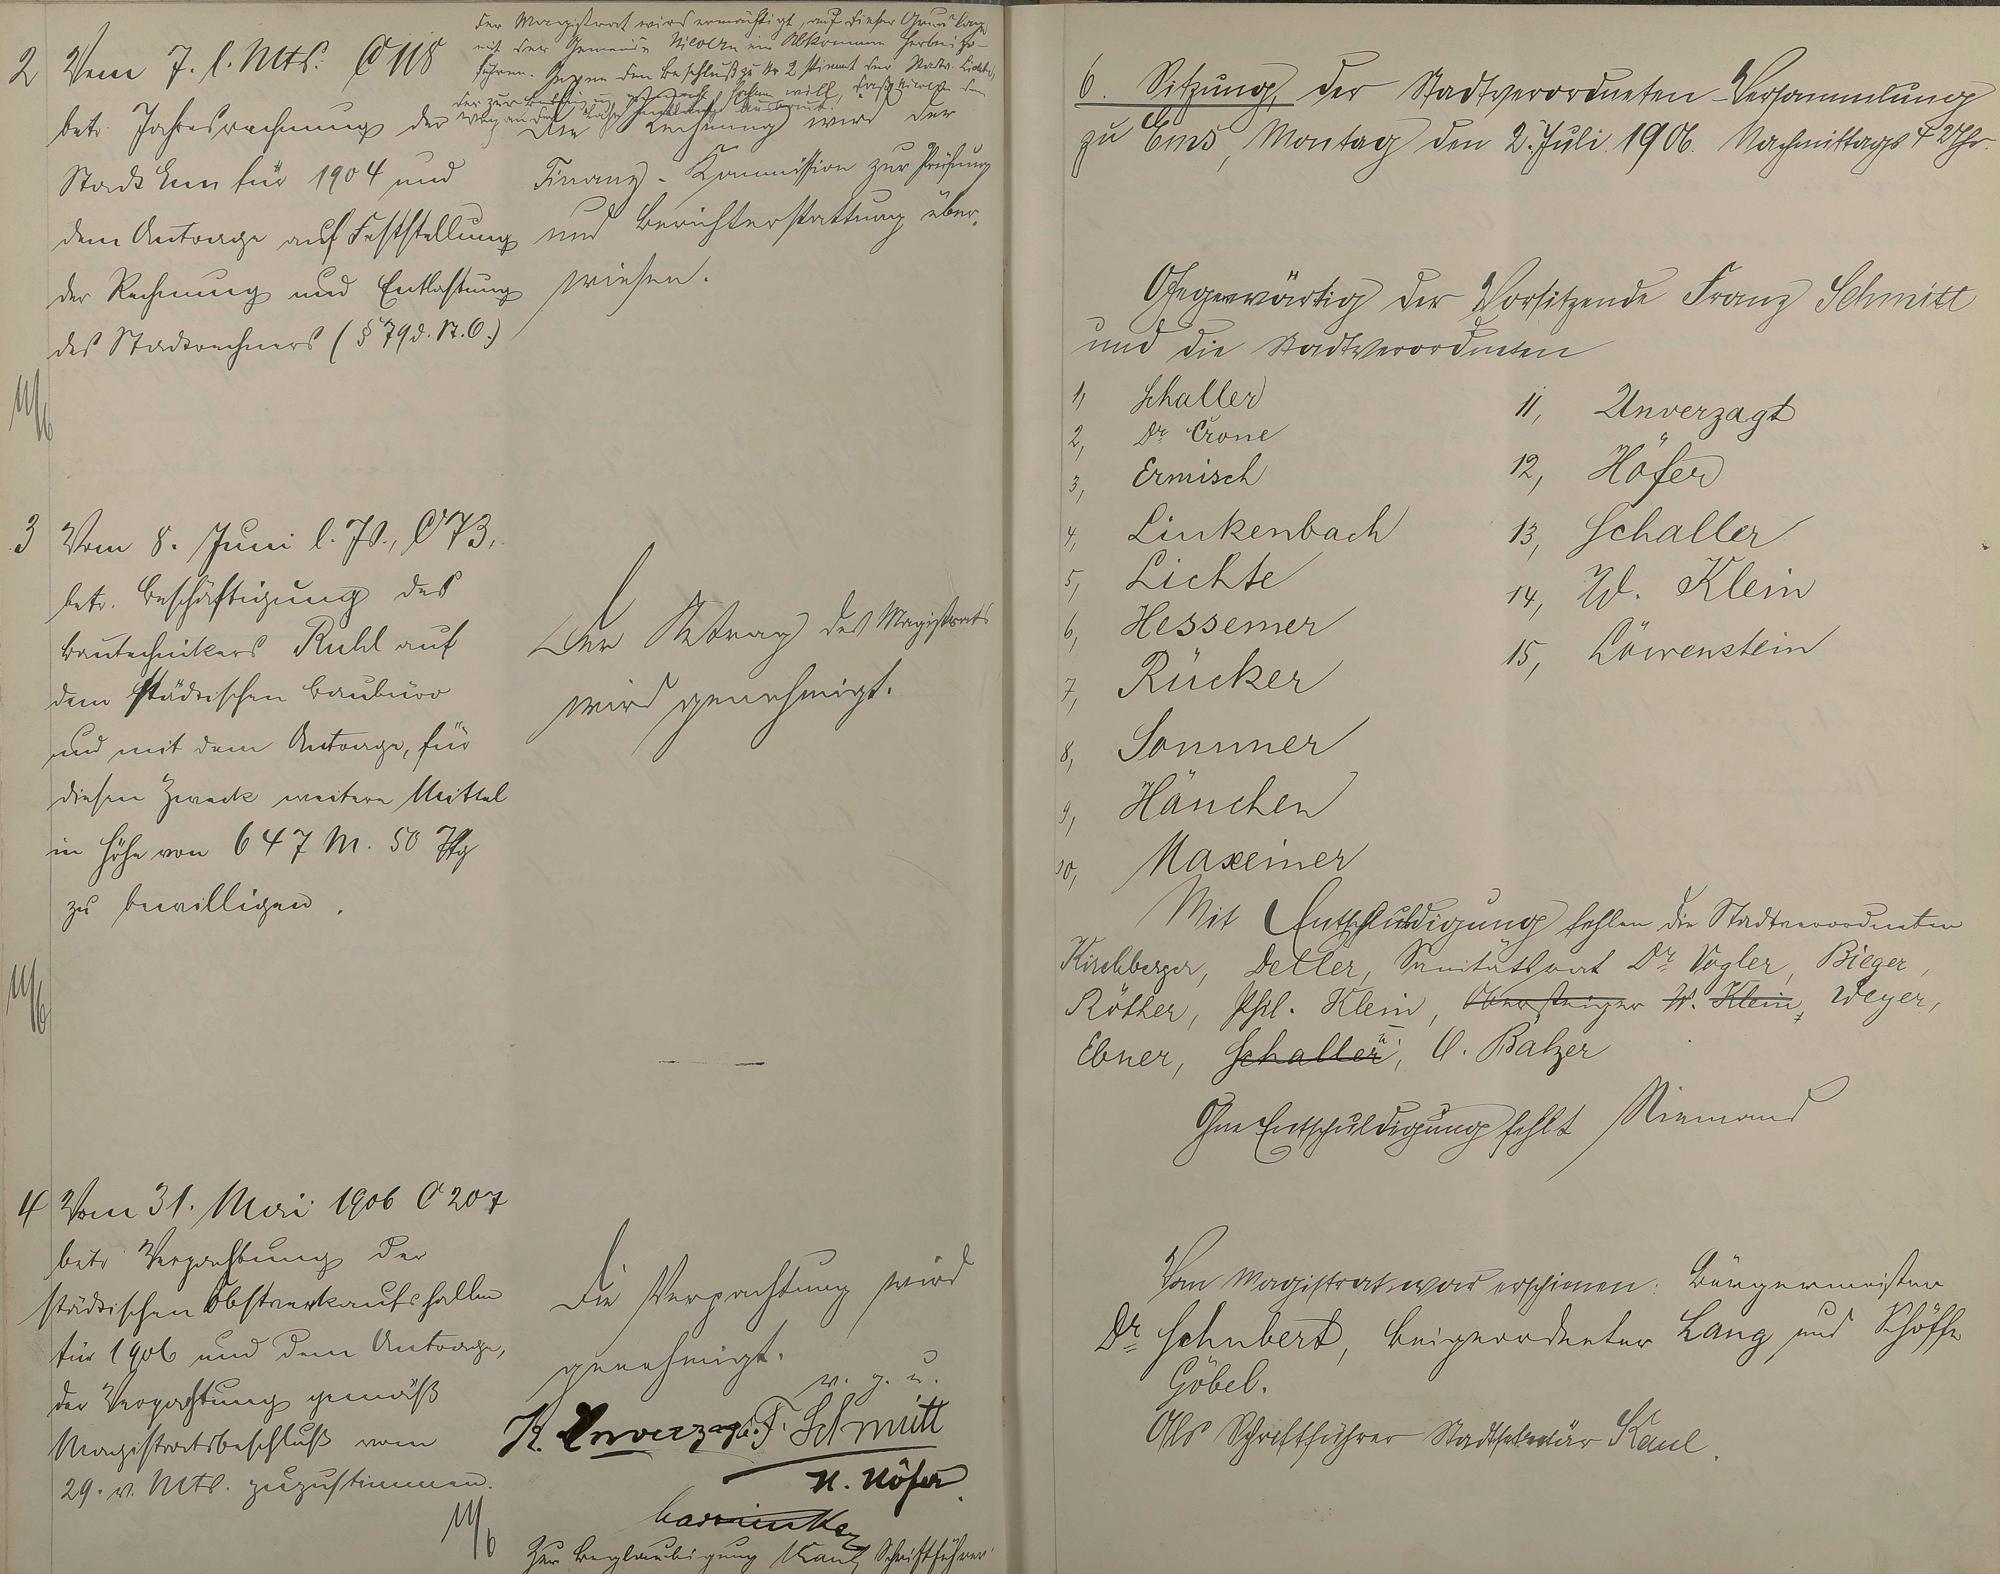 Der Magistrat wird ermächtigt, auf dieser Grundlage
mit der Gemeinde Nievern ein Abkommen herbeizu-
führen. Gegen den Beschluß zu Nr 2 stimmt der Stadtv. Lichte,
der zur Bedingung gemacht haben will, daß Nievern den
Weg an der Lahn ausbaut.
2 Vom 7. l. Mts. C 118
betr. Jahresrechnung der
Stadt Ems für 1904 und
dem Antrage auf Feststellung
der Rechnung und Entlastung
des Stadtrechners (§ 79 d. St. O.)
Die Rechnung wird der
Finanz-Kommission zur Prüfung
und Berichterstattung über-
wiesen.
3 Vom 8. Juni l. Js., C 73,
betr. Beschäftigung des
Bautechnikers Ruhl auf
dem städtischen Baubüro
und mit dem Antrage, für
diesen Zweck weitere Mittel
in Höhe von 647 M. 50 Pfg
zu bewilligen.
Der Antrag des Magistrats
wird genehmigt.
4 Vom 31. Mai 1906 C 207
betr. Verpachtung der
städtischen Obstverkaufshallen
für 1906 und dem Antrage,
der Verpachtung gemäß
Magistratsbeschluß vom
29. v. Mts. zuzustimmen.
Die Verpachtung wird
genehmigt.
v. g. u.
K. Unverzagt. F. Schmitt
H. Höfer
Zur Beglaubigung Kaul, Schriftführer
6. Sitzung der Stadtverordneten-Versammlung
zu Ems, Montag den 2. Juli 1906. Nachmittags 4 Uhr.
Gegenwärtig der Vorsitzende Franz Schmitt
und die Stadtverordneten
1, Schaller
2, Dr. Crone
3, Ermisch
4, Linkenbach
5, Lichte
6, Hessemer
7, Rücker
8, Sommer
9, Hänchen
10, Maxeiner
11, Unverzagt
12, Höfer
13, Schaller
14, W. Klein
15, Löwenstein
Mit Entschuldigung fehlen die Stadtverordneten
Kirchberger, Detler, Sanitätsrat Dr. Vogler, Bieger,
Röther, Phil. Klein, Obersteiger W. Klein, Weyer,
Ebner, Schaller II, C. Balzer
Ohne Entschuldigung fehlt Niemand
Vom Magistrat war erschienen: Bürgermeister
Dr. Schubert, Beigeordneter Lang und Schöffe
Göbel.
Als Schriftführer Stadtsekretär Kaul.